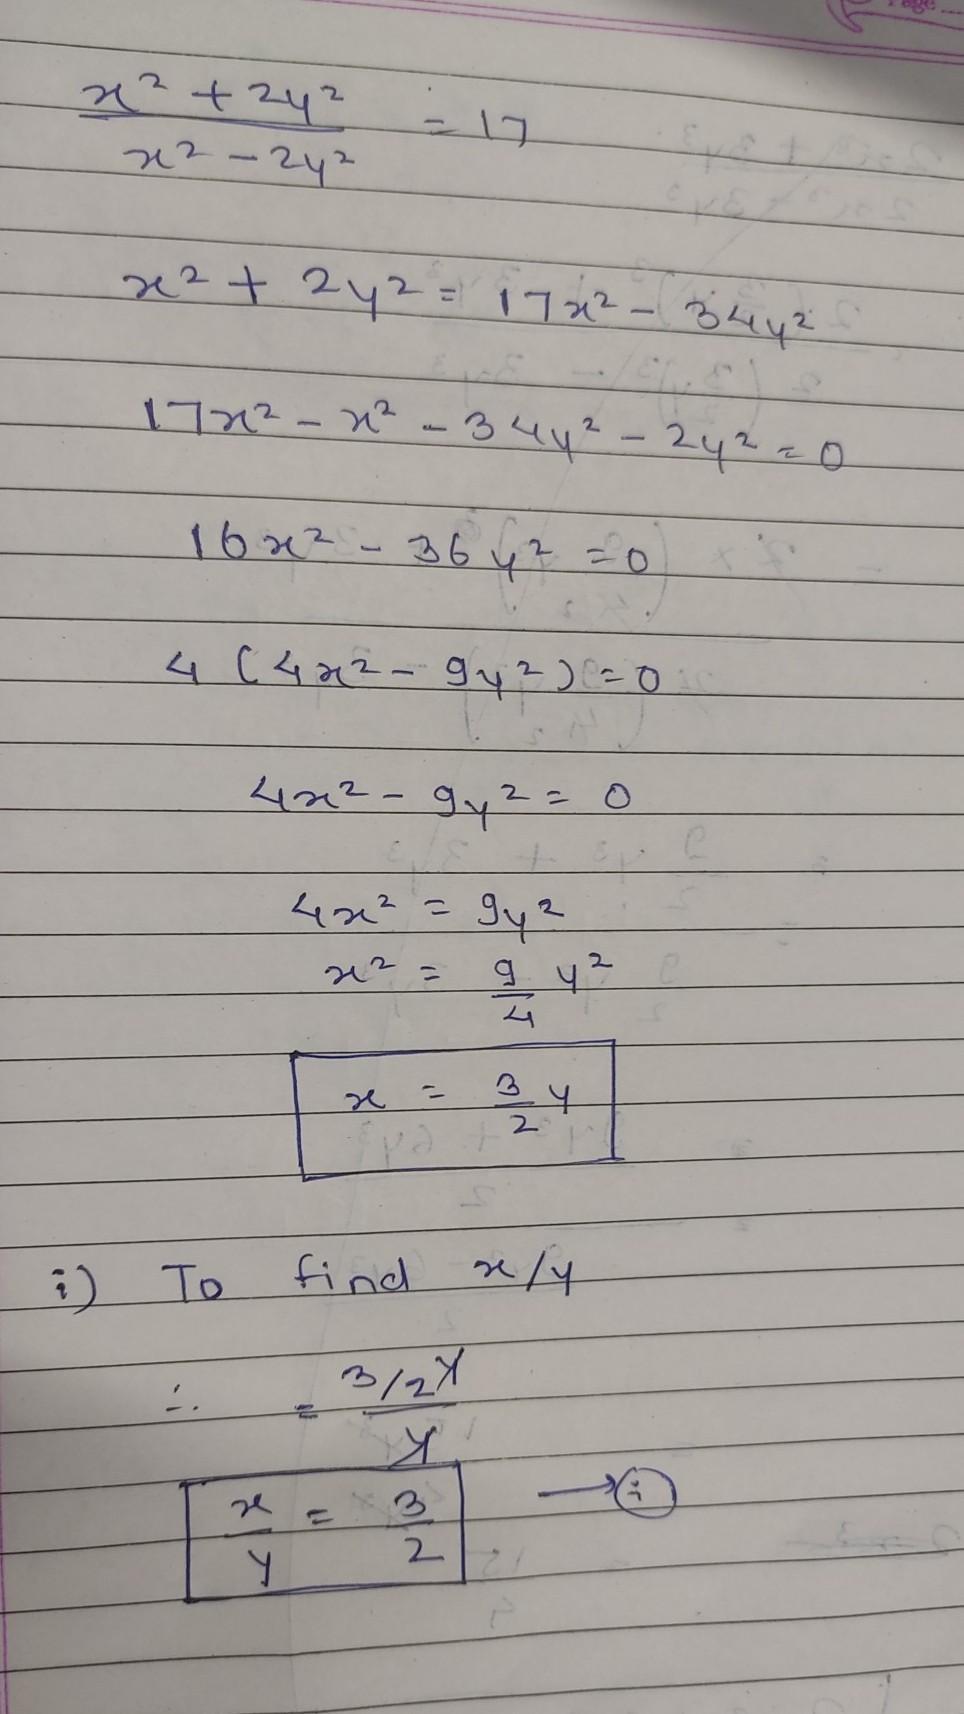 x² + 2y² / x² - 2y² = 17
x² + 2y² = 17x² - 34y²
17x² - x² - 34y² - 2y² = 0
16x² - 36y² = 0
4 (4x² - 9y²) = 0
4x² - 9y² = 0
4x² = 9y²
x² = 9/4 y²
x = 3/2 y
i) To find x/y
∴ = 3/2y / y
x/y = 3/2 → i